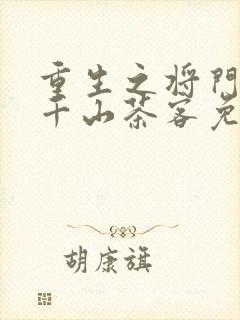 重生之将门
千山茶客免
胡康旗